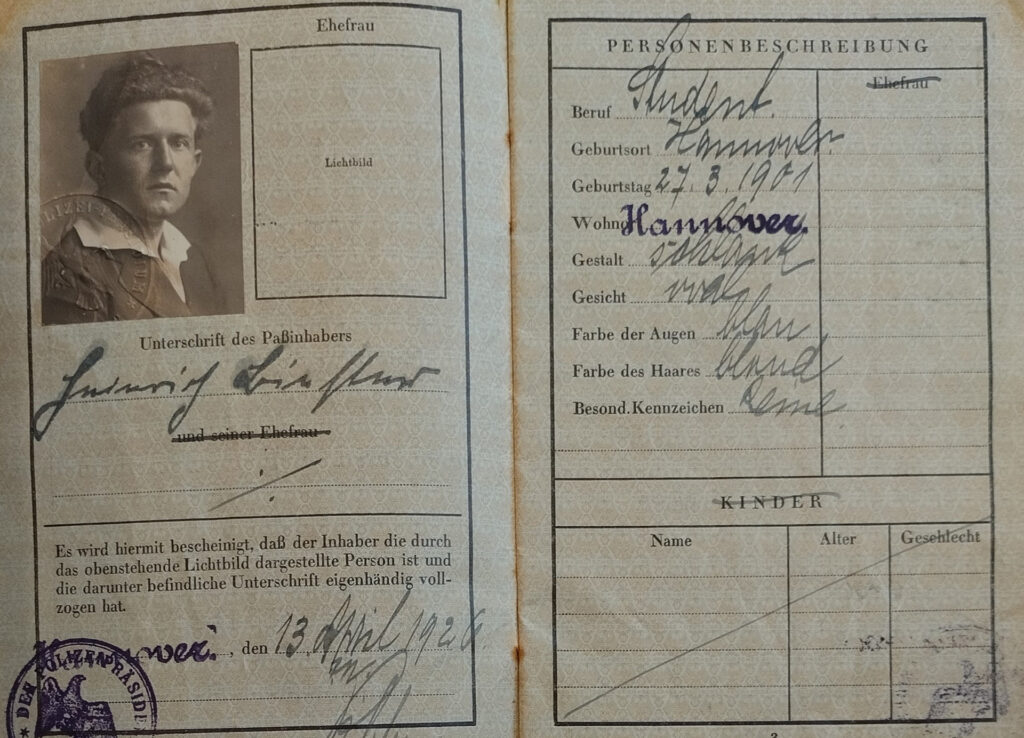 Ehefrau
Lichtbild
Unterschrift des Paßinhabers
Heinrich
und seiner Ehefrau
Es wird hiermit bescheinigt, daß der Inhaber die durch
das obenstehende Lichtbild dargestellte Person ist und
die darunter befindliche Unterschrift eigenhändig voll-
zogen hat.
, den 13. April 1926.
PERSONENBESCHREIBUNG
Ehefrau
Beruf Student.
Geburtsort Hannover.
Geburtstag 27.3.1901
Hannover.
Gestalt schlank
Gesicht oval
Farbe der Augen blau
Farbe des Haares blond
Besond. Kennzeichen Keine.
KINDER
Name Alter Geschlecht
3